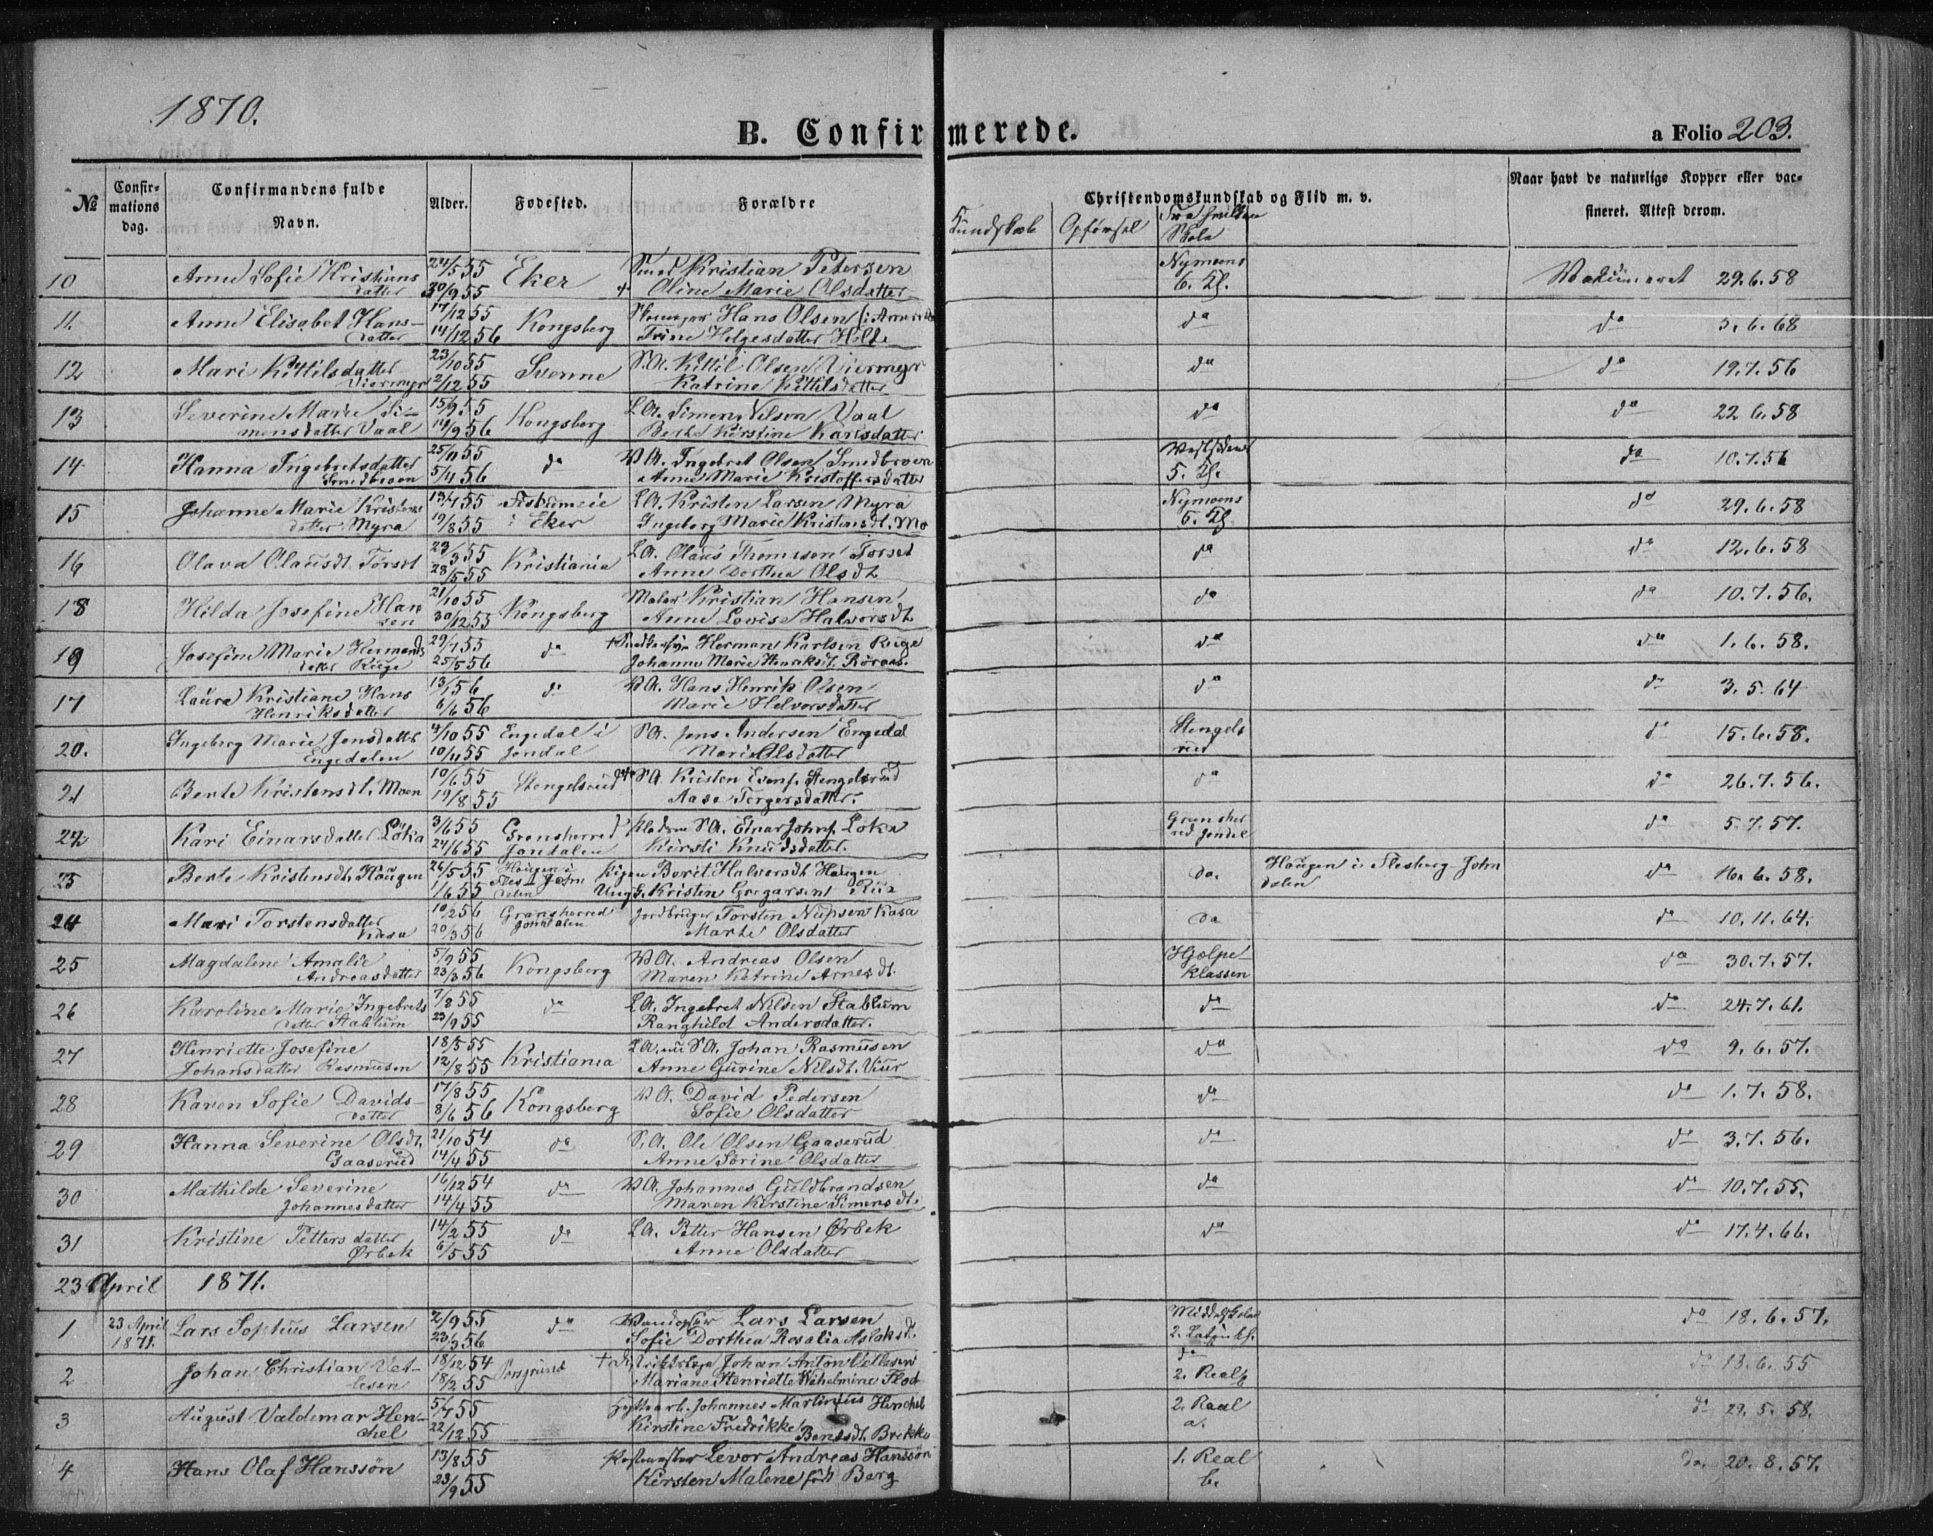 1870.
B. Confirmerede.
a Folio 203.
№
Confirmations dag.
Confirmandens fulde Navn.
Alder.
Fødested.
Forældre
Christendomskundskab og Flid m. v.
Naar havt de naturlige Kopper eller vaccineret. Attest derom.
Kundskab Opførsel Skole
10 Anne Sofie Kristians datter 24/5 55 30/9 55 Eker Kristian Petersen + Oline Marie Olsdatter Nymoens 6. Kl. Vakcineret 29.6.58
11. Anne Elisabet Hansdatter 17/12 55 14/12 56 Kongsberg Hans Olsen Trine Helgesdatter Hilde da da 5.6.68
12 Mari Kittilsdatter Viermyr 23/10 55 2/12 55 Svenne S.A. Kittil Olsen Viermyr Katrine Kittilsdatter da da 19.7.56
13 Severine Marie Simensdatter Vaal 15/9 55 14/9 56 Kongsberg L.A. Simen Nilsen Vaal Berte Kirstine Karlsdatter da da 22.6.58
14 Hanna Ingebretsdatter Smedbroen 25/11 55 5/4 56 da V.A. Ingebret Olsen Smedbroen Anne Marie Kristoffersdatter Vestsidens 5. Kl. da 10.7.56
15 Johanne Marie Kristensdatter Myra 13/4 55 19/8 55 i Eker L.A. Kristen Larsen Myra Ingeborg Marie Kristensdt. Mo Nymoens 5. Kl. da 29.6.58
16 Olava Olausdt. Torset 23/3 55 28/5 55 Kristiania L.A. Olaus Thomesen Torset Anne Dorthea Olsdt da da 12.6.58
18 Hilda Josefine Hansen 21/10 55 30/12 55 Kongsberg Maler Kristian Hansen Anne Lovise Halvorsdt da da 10.7.56.
19 Josefine Marie Hermandsdatter Ruge 29/7 55 25/5 56 da + Herman Karlsen Ruge Johanne Marie Henriksdt. Röraas. da da 1.6.58.
17 Laura Kristiane Hans Henriksdatter 13/1 56 6/6 56 da V.A. Hans Henrik Olsen Marie Halvorsdatter da da 3.5.64
20. Ingeborg Marie Jensdatter Engedalen 4/10 55 10/11 55 Engedal i Jondal S.A. Jens Andersen Engedal Mari Olsdatter Stengelsrud da 15.6.58.
21 Berte Kristensdt. Moen 10/6 55 19/8 55 Stengelsrud S.A. Kristen Evens. Stengelsrud Aase Torgersdatter. da da 26.7.56.
22 Kari Einarsdatter Löka 3/6 55 24/6 55 Gransherred Jondalen S.A. Einar Johns. Löka Kirsti Knudsdatter Gransherred Jondal da 5.7.57.
23 Berte Kristensdt. Haugen 26/5 55 1/6 55 Haugen i Pigen Berit Halvorsdt Haugen Ung. Kristen Gregarsen Ruz da. Haugen i Flesberg Johndalen da 16.6.58.
24 Mari Torstensdatter Kasa 10/2 56 20/3 56 Gransherred Jondalen Jordbruger Torsten Nupsen Kasa Marte Olsdatter da da 10.11.64.
25 Magdalene Amalie Andreasdatter 5/9 55 23/3 56 Kongsberg V.A. Andreas Olsen Maren Katrine Arnesdt. Hjælpeklassen da 30.7.57.
26 Karoline Marie Ingebretsdatter Stablum 7/8 55 23/9 55 da L.A. Ingebret Nilsen Stablum Ranghild Andersdatter. da da 24.7.61.
27 Henriette Josefine Johansdatter Rasmusen 18/5 55 12/8 55 Kristiania S.A. Johan Rasmusen Anne Gurine Nilsdt. Viur da da 9.6.57.
28 Karen Sofie Davidsdatter 17/8 55 8/6 56 Kongsberg V.A. David Pedersen Sofie Olsdatter da da 1.7.58.
29 Hanna Severine Olsdt. Gaaserud 21/10 54 14/4 55 da S.A. Ole Olsen Gaaserud Anne Sörine Olsdatter da da 3.7.56.
30 Mathilde Severine Johannesdatter 16/12 54 14/4 55 da V.A. Johannes Guldbrandsen Maren Kirstine Simensdt. da da 10.7.55.
31 Kristine Pettersdatter Ørbek 14/2 55 6/5 55 da L.A. Petter Hansen Ørbek Anne Olsdatter da da 17.4.66.
23 April 1871.
1 23 April 1871. Lars Sophus Larsen 2/9 55 23/3 56 da Lars Larsen Sofie Dorthea Rosalia Aslaksdt. Middelskolen 2. Latinkl. da 18.6.57.
2 Johan Christian Vetlesen 18/12 54 18/2 55 Porsgrund + Distriktslæge Johan Anton Vetlesen Mariane Henriette Wilhelmine Flod da 2. Real b da 13.6.55
3 August Valdemar Henchel 5/7 55 22/12 55 Hyttearb. Johannes Martinius Henchel Kirstine Fredrikke Bentsdt. Brekke 2. Real a. da 29.5.58.
4 Hans Olaf Hanssön 13/8 55 23/9 55 Postmester Levor Andreas Hanssön Kirsten Malene född Berg 1. Real b. da. 20.8.57.